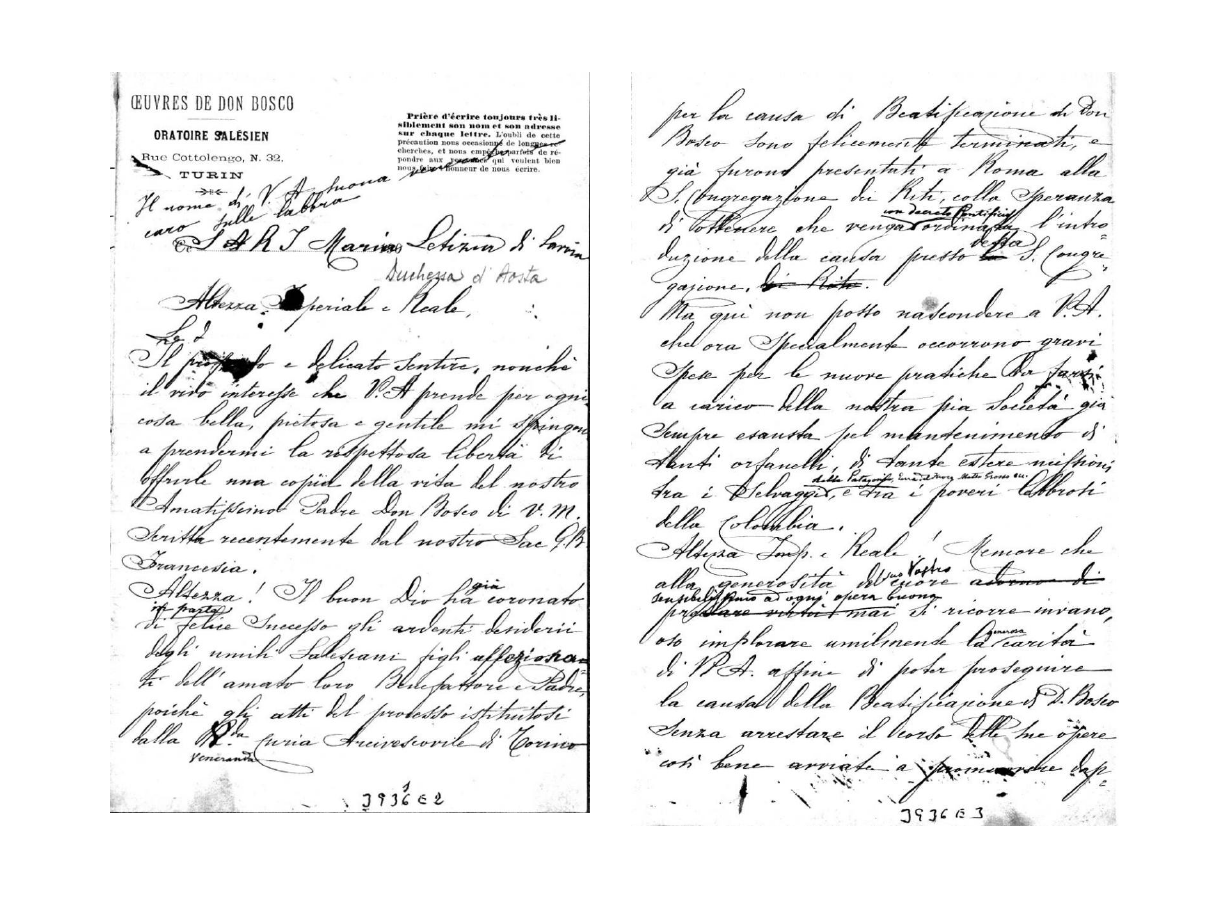 ŒUVRES DE DON BOSCO
ORATOIRE SALÉSIEN
Rue Cottolengo, N. 32.
TURIN
Prière d'écrire toujours très li-
siblement son nom et son adresse
sur chaque lettre. L'oubli de cette
précaution nous occasionne de longues re-
cherches, et nous empêche parfois de ré-
pondre aux personnes qui veulent bien
nous faire l'honneur de nous écrire.
Il nome di V. A. suona
caro sulle labbra
S A R I Maria Letizia di Savoia
Duchessa d'Aosta
Altezza Imperiale e Reale,
Il profondo e delicato sentire, nonchè
il vivo interesse che V. A prende per ogni
cosa bella, pietosa e gentile mi spingono
a prendermi la rispettosa libertà di
offrirle una copia della vita del nostro
Amatissimo Padre Don Bosco di V. M.
Scritta recentemente dal nostro Sac G. B
Francesia.
Altezza! Il buon Dio ha già coronato
in parte
di felice Successo gli ardenti desiderii
degli umili Salesiani figli affeziona=
ti dell'amato loro Benefattore e Padre,
poichè gli atti del processo istituitosi
dalla R.da Curia Arcivescovile di Torino
Veneranda
J936 E 2
per la causa di Beatificazione di Don
Bosco sono felicemente terminati, e
già furono presentati a Roma alla
S. Congregazione dei Riti, colla Speranza
con decreto Pontificio
di ottenere che venga ordinata l'intro=
duzione della causa presso detta S. Congre=
gazione, dei Riti.
Ma qui non posso nascondere a V. A.
che ora Specialmente occorrono gravi
Spese per le nuove pratiche da farsi
a carico della nostra pia Società già
Sempre esausta pel mantenimento di
tanti orfanelli, di tante estere missioni
della Patagonia, Mato Grosso ecc.
tra i Selvaggi, e tra i poveri lebbrosi
della Colombia.
Altezza Imp. e Reale! Memore che
suo Vostro
alla generosità del cuore adorno di
sensibilissimo ad ogni opera buona
preclare virtù mai si ricorre invano,
oso implorare umilmente la generosa carità
di V. A. affine di poter proseguire
la causa della Beatificazione di D. Bosco
Senza arrestare il corso delle sue opere
così bene avviate a promuovere dap=
J936 E 3